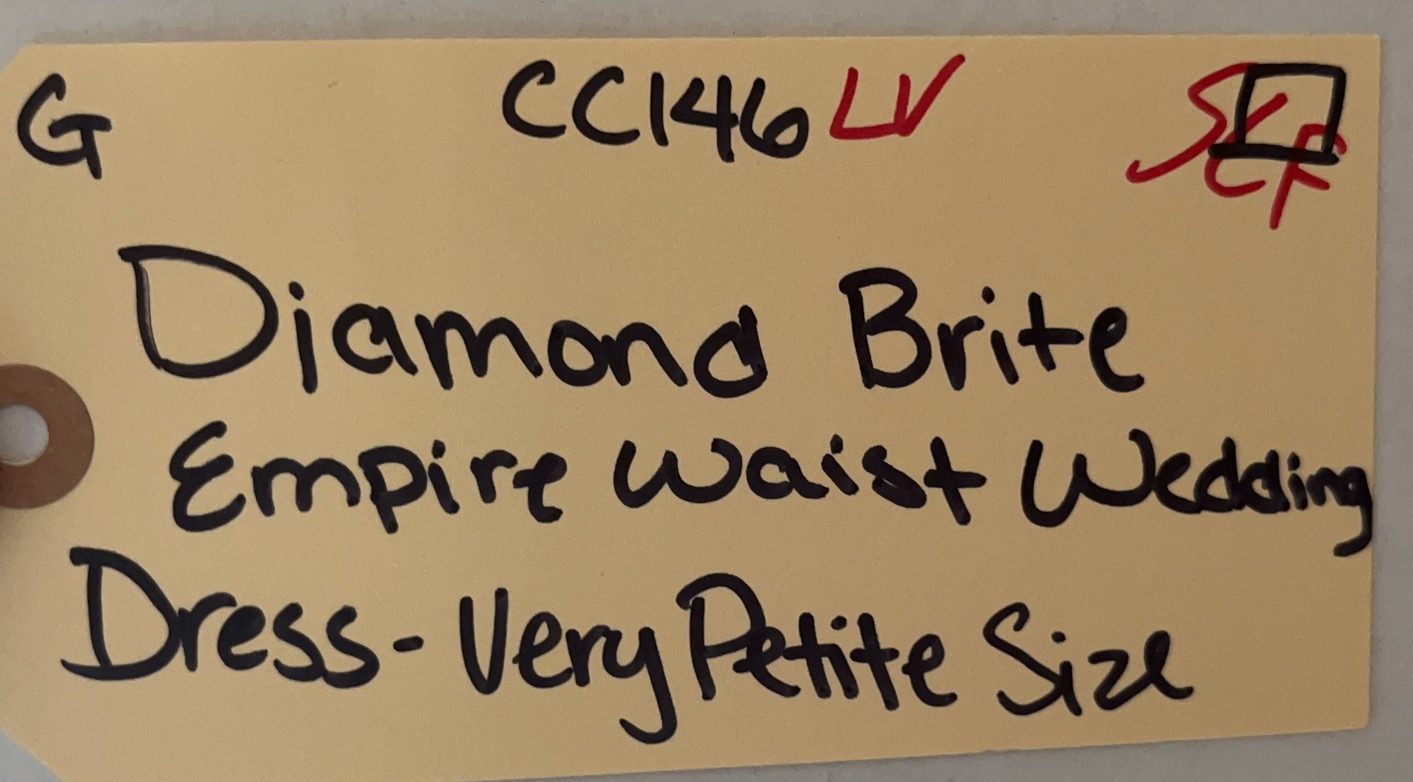 G CC146 LV
Diamond Brite
Empire Waist Wedding
Dress - Very Petite Size